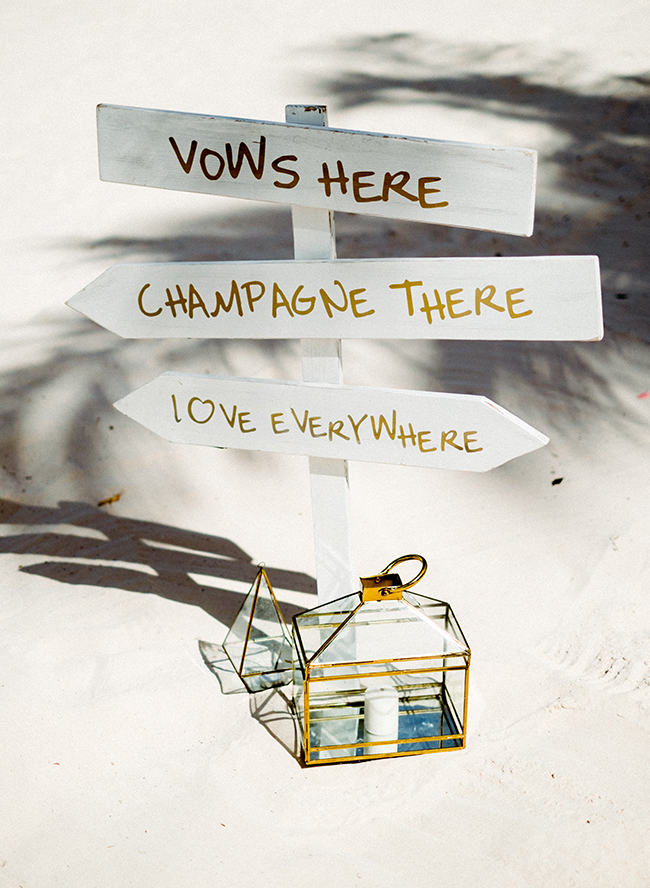 VOWS HERE
CHAMPAGNE THERE
LOVE EVERYWHERE